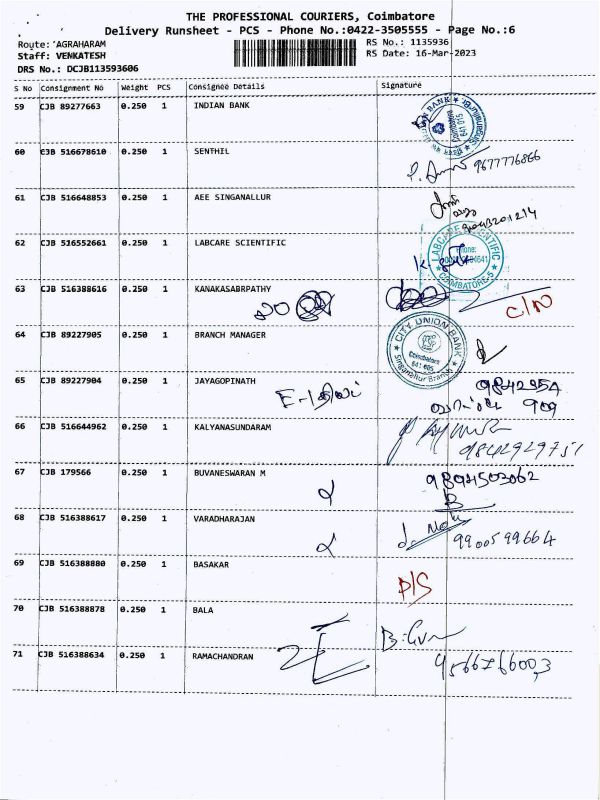 THE PROFESSIONAL COURIERS, Coimbatore
Delivery Runsheet - PCS - Phone No.:0422-3505555 - Page No.:6
Route: AGRAHARAM
RS No.: 1135936
Staff: VENKATESH
RS Date: 16-Mar-2023
DRS No.: DCJB113593606
S No Consignment No Weight PCS Consignee Details Signature
59 CJB 89277663 0.250 1 INDIAN BANK
60 CJB 516678610 0.250 1 SENTHIL
9677776866
61 CJB 516648853 0.250 1 AEE SINGANALLUR
62 CJB 516552661 0.250 1 LABCARE SCIENTIFIC
LABCARE SCIENTIFIC
Phone:
COIMBATORE-5
63 CJB 516388616 0.250 1 KANAKASABRPATHY
C/N
64 CJB 89227905 0.250 1 BRANCH MANAGER
CITY UNION BANK
Coimbatore
641 005
Singanallur Branch
65 CJB 89227904 0.250 1 JAYAGOPINATH
9842954
909
66 CJB 516644962 0.250 1 KALYANASUNDARAM
9842929751
67 CJB 179566 0.250 1 BUVANESWARAN M
9894503062
68 CJB 516388617 0.250 1 VARADHARAJAN
9900599664
69 CJB 516388880 0.250 1 BASAKAR
P/S
70 CJB 516388878 0.250 1 BALA
71 CJB 516388634 0.250 1 RAMACHANDRAN